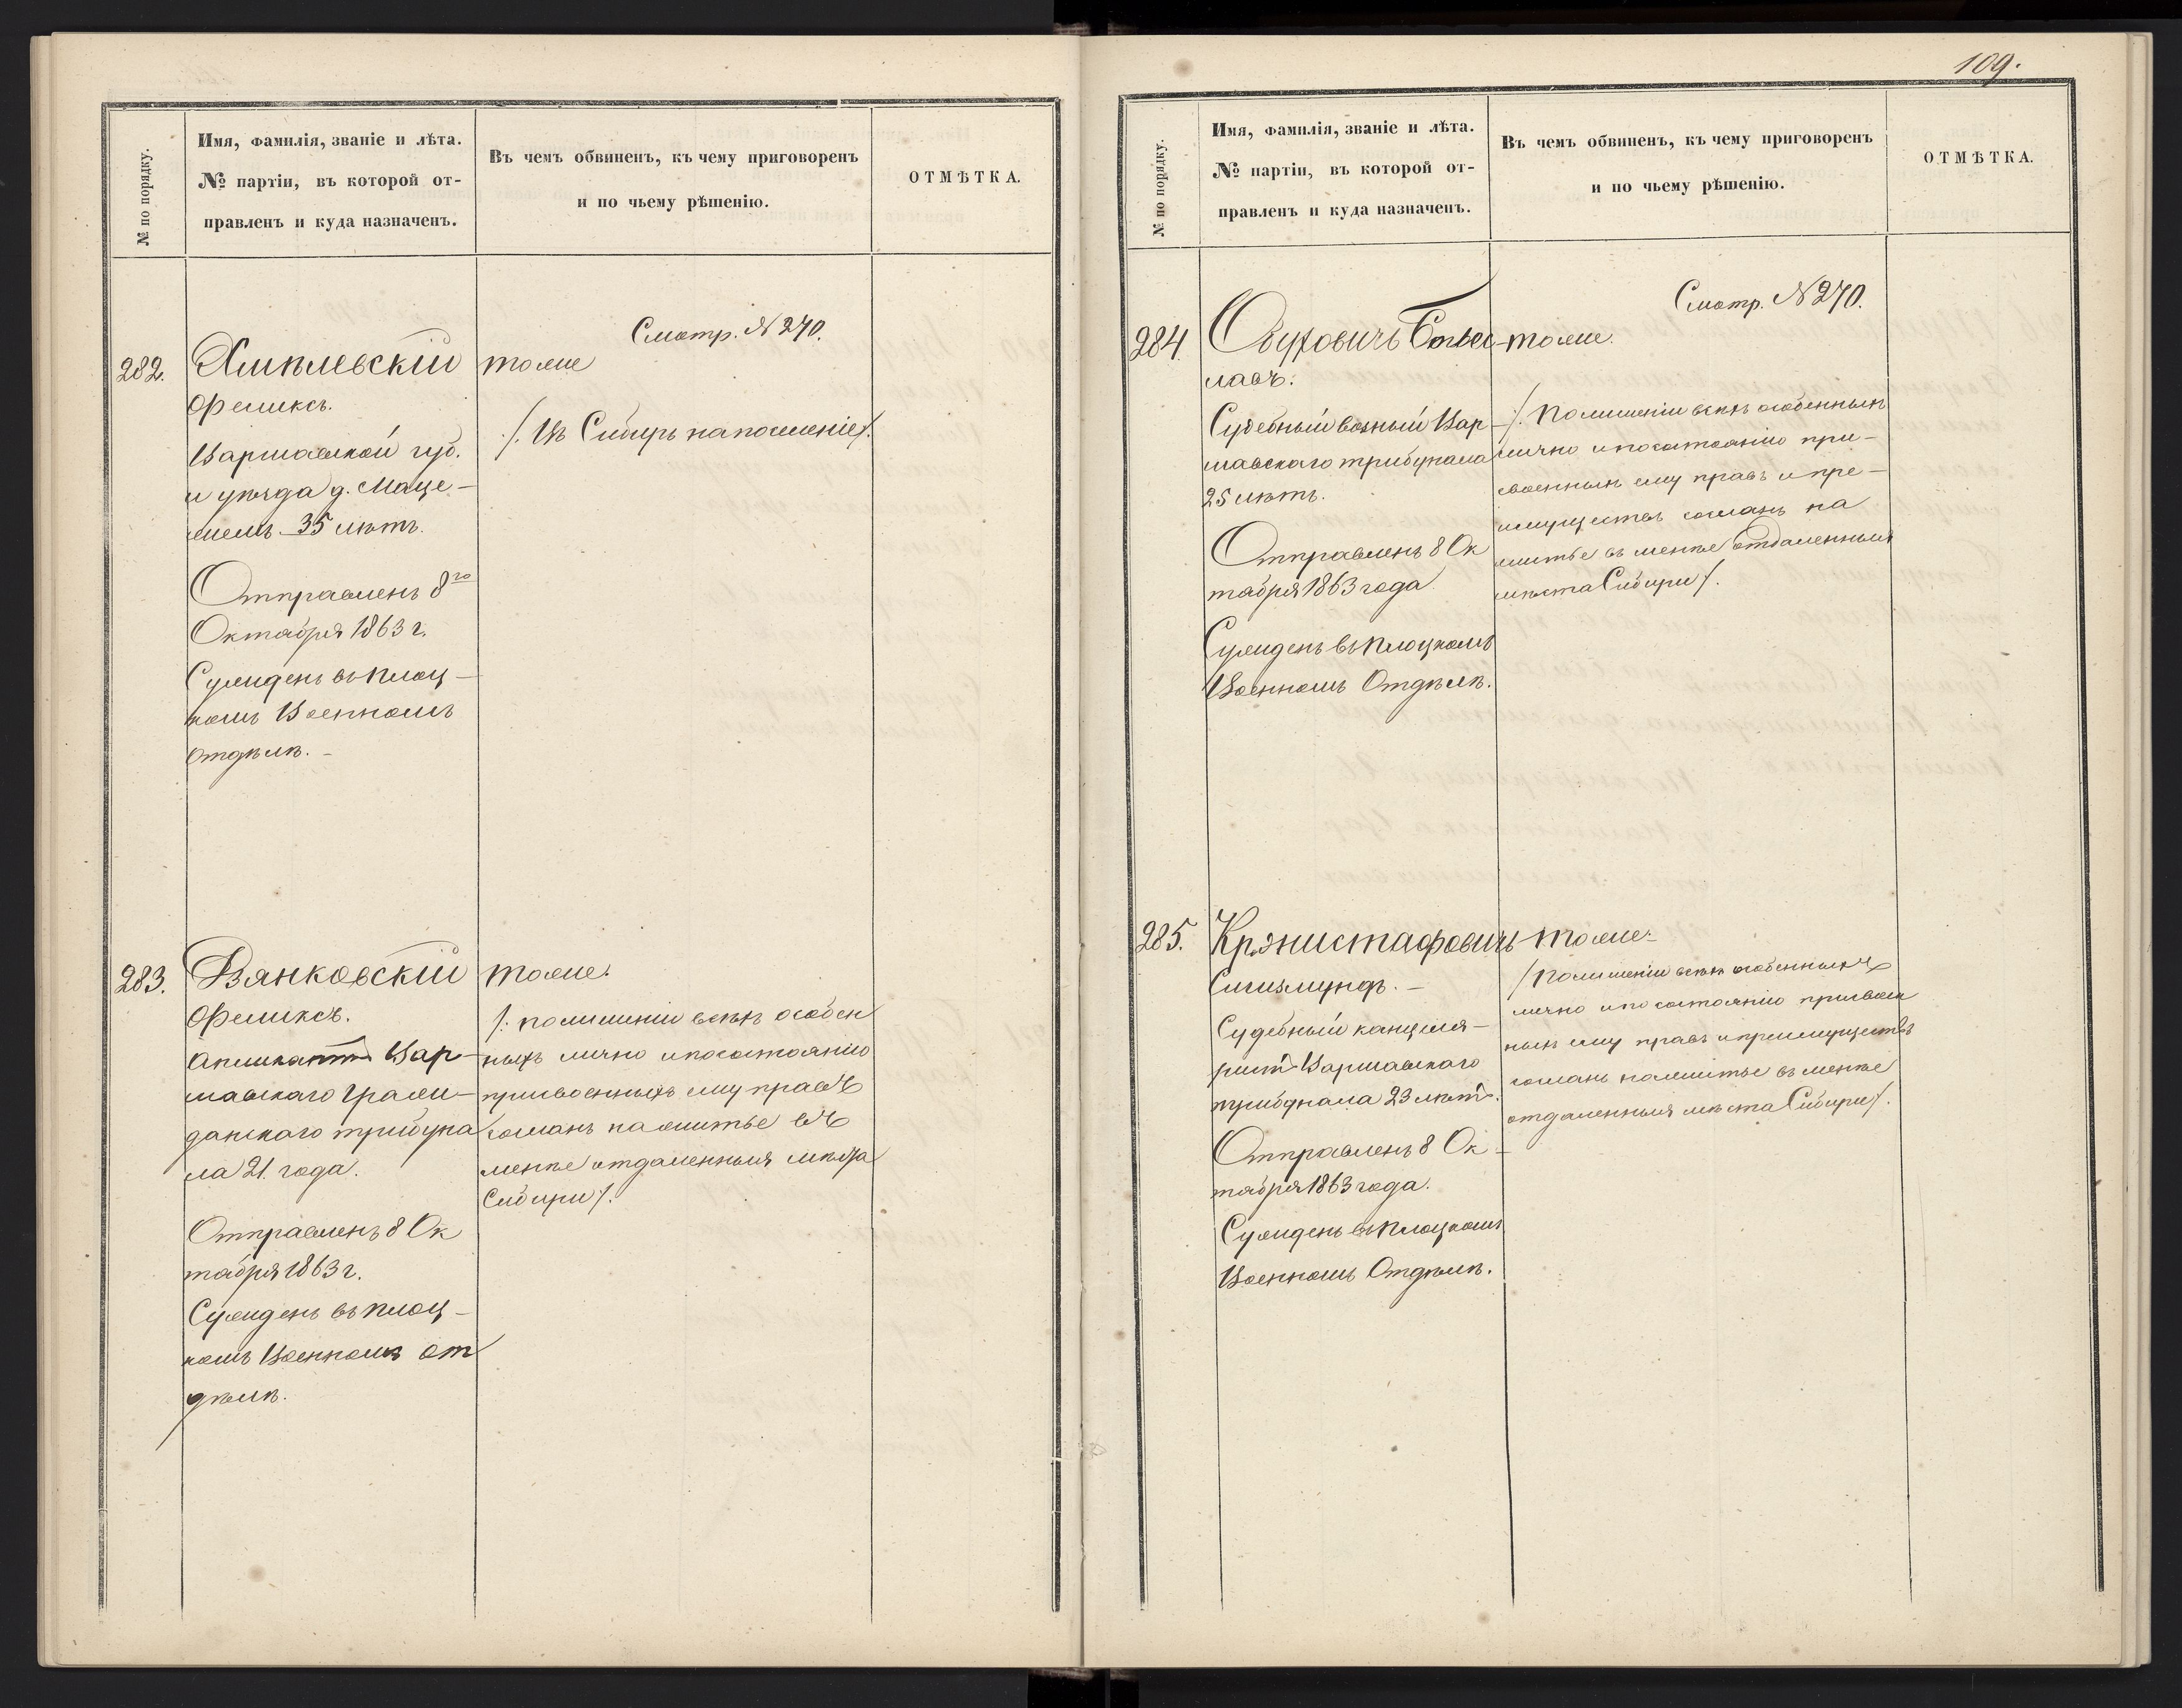 № по порядку.
Имя, фамилія, званіе и лѣта.
№ партіи, въ которой от-
правленъ и куда назначенъ.
Въ чемъ обвиненъ, къ чему приговоренъ
и по чьему рѣшенію.
ОТМѢТКА.
Смотр. № 270.
282.
Хмѣлевскій
Феликсъ.
Варшавской губ.
и уѣзда д. Маце-
35 лѣтъ.
Отправленъ 8го
Октября 1863 г.
Сужденъ въ Плоц-
комъ Военномъ
Отдѣлѣ. -
тоже
/. Въ Сибирь на поселеніе /.
283.
Вянковскій
Феликсъ.
Апликантъ Вар-
шавскаго Граж-
данскаго трибуна
ла 21 года.
Отправленъ 8 Ок
тября 1863 г.
Сужденъ въ Плоц-
комъ Военномъ От
дѣлѣ.
тоже.
/: По лишеніи всѣхъ особен
ныхъ лично и по состоянію
присвоенныхъ ему правъ
сосланъ на житье въ
менѣе отдаленныя мѣста
Сибири /.
109.
№ по порядку.
Имя, фамилія, званіе и лѣта.
№ партіи, въ которой от-
правленъ и куда назначенъ.
Въ чемъ обвиненъ, къ чему приговоренъ
и по чьему рѣшенію.
ОТМѢТКА.
Смотр. № 270.
284.
Обуховичъ Болес-
лавъ.
Судебный возный Вар-
шавскаго трибунала
25 лѣтъ.
Отправленъ 8 Ок
тября 1863 года
Сужденъ въ Плоцкомъ
Военномъ Отдѣлѣ.
тоже.
/. По лишеніи всѣхъ особенныхъ
лично и по состоянію при-
своенныхъ ему правъ и пре-
имуществъ сосланъ на
житье въ менѣе отдаленныя
мѣста Сибири /.
285.
Крянистафовичъ
Сигизмундъ. -
Судебный канцеля-
ристъ Варшавскаго
трибунала 23 лѣтъ.
Отправленъ 8 Ок-
тября 1863 года.
Сужденъ въ Плоцкомъ
Военномъ Отдѣлѣ.
тоже.
/ По лишеніи всѣхъ особенныхъ
лично и по состоянію присвоен
ныхъ ему правъ и преимуществъ
сосланъ на житье въ менѣе
отдаленныя мѣста Сибири /.